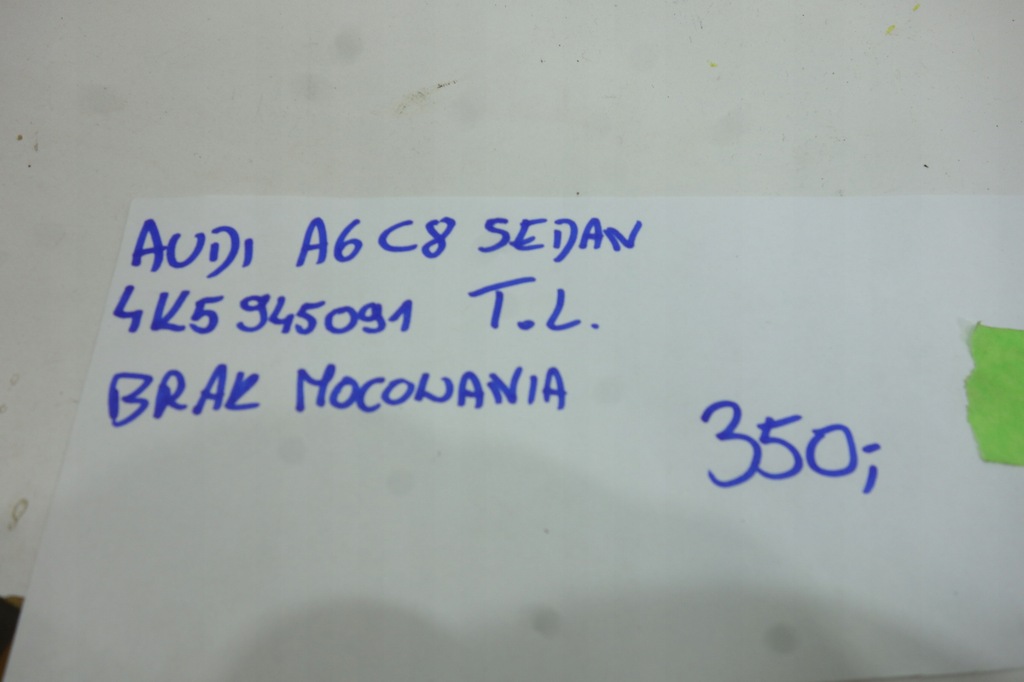 AUDI A6 C8 SEDAN
4K5945091 T.L.
BRAK MOCOWANIA
350,-